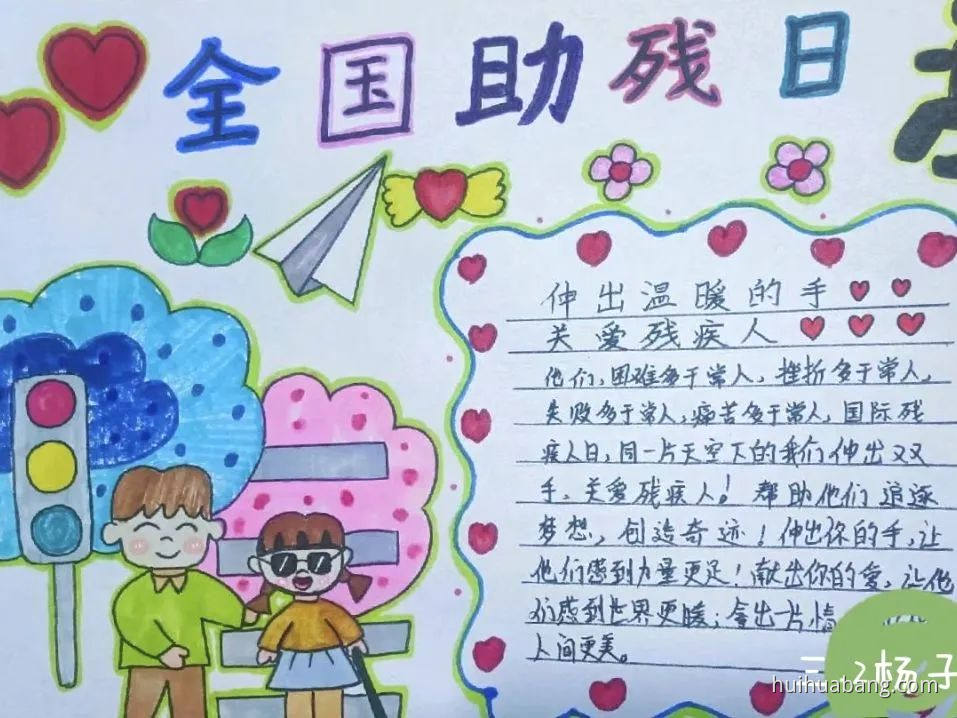 全国助残日
伸出温暖的手
关爱残疾人
他们,困难多于常人,挫折多于常人,
失败多于常人,痛苦多于常人,国际残
疾人日,同一片天空下的我们伸出双
手,关爱残疾人!帮助他们追逐
梦想,创造奇迹!伸出你的手,让
他们感到力量更足!献出你的爱,让他
们感到世界更暖;拿出一片情
人间更美。
三.2杨子
huihuabang.com